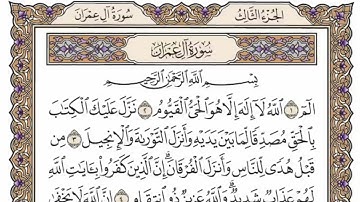 الجزء الثالث
سورة آل عمران
سُورَةُ آلِ عِمْرَانَ
بِسْمِ اللَّهِ الرَّحْمَٰنِ الرَّحِيمِ
الٓمٓ ١ ٱللَّهُ لَآ إِلَٰهَ إِلَّا هُوَ ٱلْحَىُّ ٱلْقَيُّومُ ٢ نَزَّلَ عَلَيْكَ ٱلْكِتَٰبَ
بِٱلْحَقِّ مُصَدِّقًا لِّمَا بَيْنَ يَدَيْهِ وَأَنزَلَ ٱلتَّوْرَىٰةَ وَٱلْإِنجِيلَ ٣ مِن
قَبْلُ هُدًى لِّلنَّاسِ وَأَنزَلَ ٱلْفُرْقَانَ إِنَّ ٱلَّذِينَ كَفَرُوا۟ بِـَٔايَٰتِ ٱللَّهِ
لَهُمْ عَذَابٌ شَدِيدٌ وَٱللَّهُ عَزِيزٌ ذُو ٱنتِقَامٍ ٤ إِنَّ ٱللَّهَ لَا يَخْفَىٰ